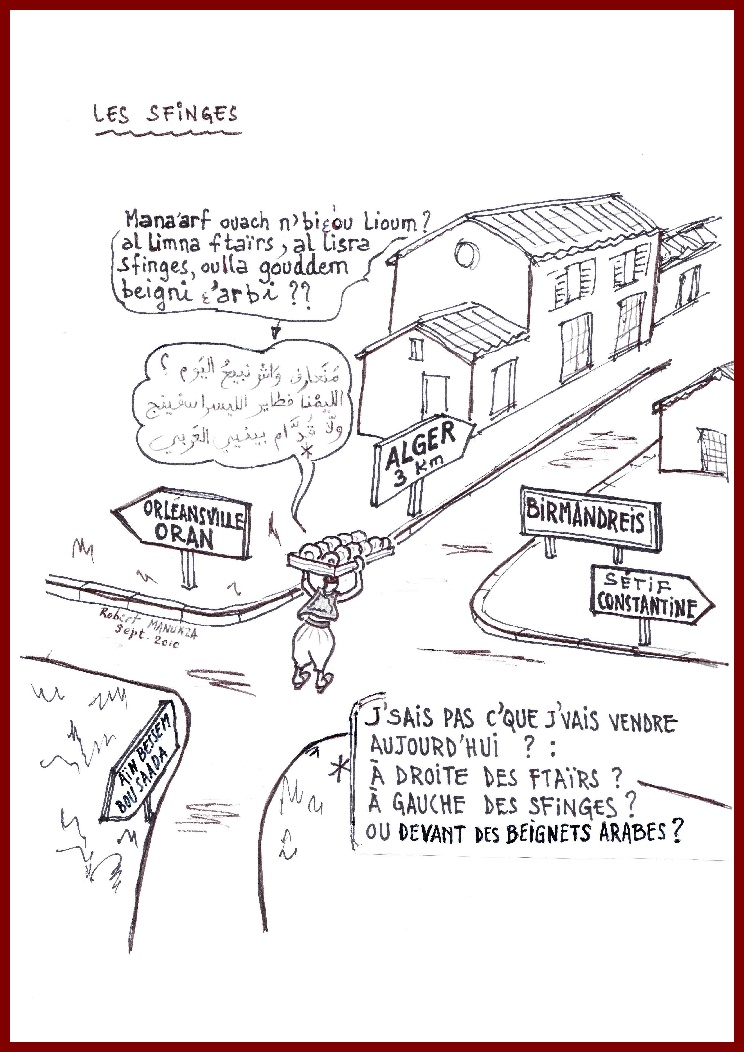 LES SFINGES
Mana'arf ouach n'biε'ou Lioum?
al Limna ftaïrs, al lisra
sfinges, oulla gouddem
beigni ε'arbi ??
مَنَعارف وَاش نبيعُ اليَوم ؟
الليمْنا فطاير الليسرا سفينج
ولَّا قُدَّام بينيي العَربي
*
ALGER
3 Km
ORLÉANSVILLE
ORAN
BIRMANDREIS
SÉTIF
CONSTANTINE
Robert MANUKZA
Sept. 2010
AÏN BESSEM
BOU SAADA
* J'SAIS PAS C'QUE J'VAIS VENDRE
AUJOURD'HUI ? :
À DROITE DES FTAÏRS ?
À GAUCHE DES SFINGES ?
OU DEVANT DES BEIGNETS ARABES ?